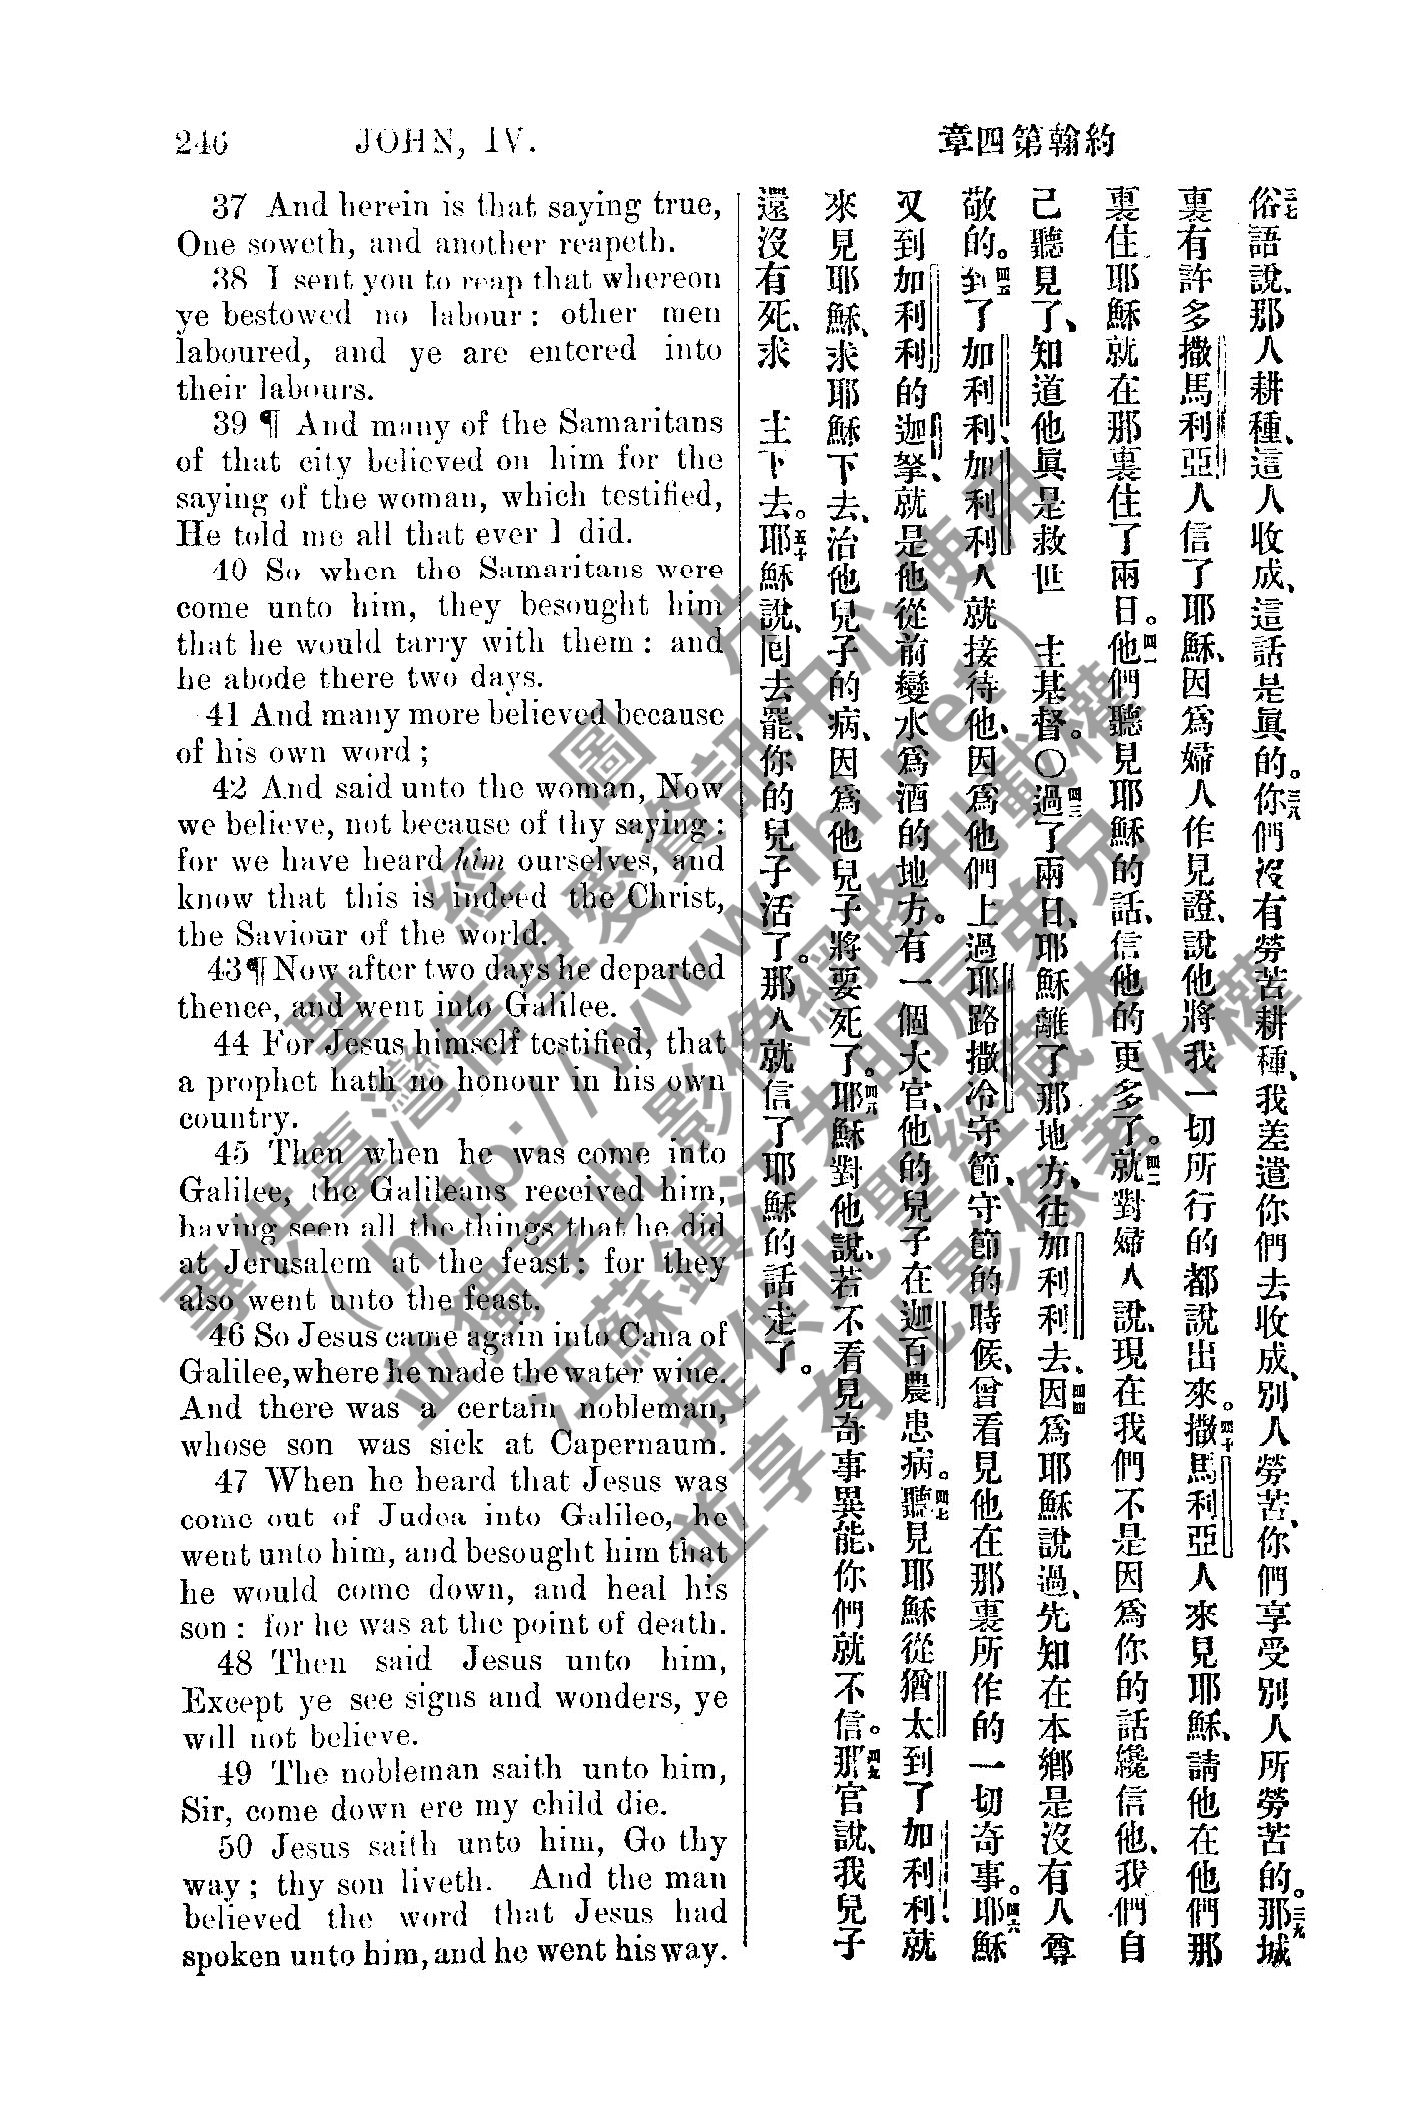 246 JOHN, IV.
約翰第四章
37 And herein is that saying true,
One soweth, and another reapeth.
38 I sent you to reap that whereon
ye bestowed no labour: other men
laboured, and ye are entered into
their labours.
39 ¶ And many of the Samaritans
of that city believed on him for the
saying of the woman, which testified,
He told me all that ever I did.
40 So when the Samaritans were
come unto him, they besought him
that he would tarry with them: and
he abode there two days.
41 And many more believed because
of his own word;
42 And said unto the woman, Now
we believe, not because of thy saying:
for we have heard him ourselves, and
know that this is indeed the Christ,
the Saviour of the world.
43 ¶ Now after two days he departed
thence, and went into Galilee.
44 For Jesus himself testified, that
a prophet hath no honour in his own
country.
45 Then when he was come into
Galilee, the Galileans received him,
having seen all the things that he did
at Jerusalem at the feast: for they
also went unto the feast.
46 So Jesus came again into Cana of
Galilee, where he made the water wine.
And there was a certain nobleman,
whose son was sick at Capernaum.
47 When he heard that Jesus was
come out of Judea into Galilee, he
went unto him, and besought him that
he would come down, and heal his
son: for he was at the point of death.
48 Then said Jesus unto him,
Except ye see signs and wonders, ye
will not believe.
49 The nobleman saith unto him,
Sir, come down ere my child die.
50 Jesus saith unto him, Go thy
way; thy son liveth. And the man
believed the word that Jesus had
spoken unto him, and he went his way.
三七俗語說、那人耕種、這人收成、這話是眞的。三八你們沒有勞苦耕種、我差遣你們去收成、別人勞苦、你們享受別人所勞苦的。三九那城
裏有許多撒馬利亞人信了耶穌、因爲婦人作見證、說他將我一切所行的都說出來。四十撒馬利亞人來見耶穌、請他在他們那
裏住、耶穌就在那裏住了兩日。四一他們聽見耶穌的話、信他的更多了。四二就對婦人說、現在我們不是因爲你的話纔信他、我們自
己聽見了、知道他眞是救世 主基督。○四三過了兩日、耶穌離了那地方、往加利利去、四四因爲耶穌說過、先知在本鄉是沒有人尊
敬的。四五到了加利利、加利利人就接待他、因爲他們上過耶路撒冷守節、守節的時候、曾看見他在那裏所作的一切奇事。四六耶穌
又到加利利的迦拏、就是他從前變水爲酒的地方。有一個大官、他的兒子在迦百農患病。四七聽見耶穌從猶太到了加利利、就
來見耶穌、求耶穌下去、治他兒子的病、因爲他兒子將要死了。四八耶穌對他說、若不看見奇事異能、你們就不信。四九那官說、我兒子
還沒有死、求 主下去。五十耶穌說、囘去罷、你的兒子活了。那人就信了耶穌的話走了。
聖經圖片
專供臺灣信望愛資訊中心使用
(http://www.fhl.net)
並獨享此影像網路刊載權
江蘇鎮江朱明辰弟兄
提供此聖經藏本
並享有此影像著作權